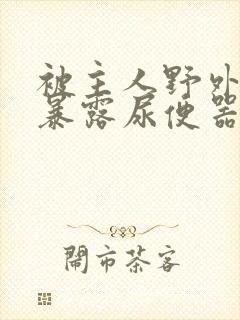 被主人野外
暴露尿便器
閙市茶客